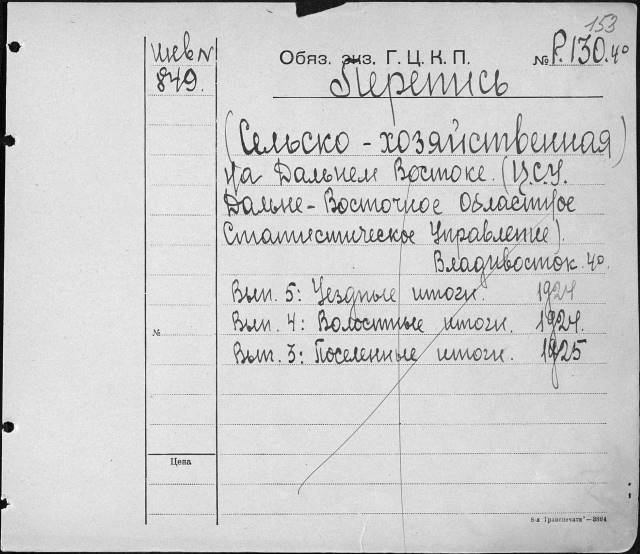 153
шсв N
849.
Обяз. экз. Г. Ц. К. П.
№ Р.130.4º
Перепись
(Сельско - хозяйственная)
на Дальнем Востоке. (Ц.С.У.
Дальне-Восточное Областное
Статистическое Управление).
Владивосток. 4º.
Вып. 5: Уездные итоги. 1924
Вып. 4: Волостные итоги. 1924.
№
Вып. 3: Поселенные итоги. 1925
Цена